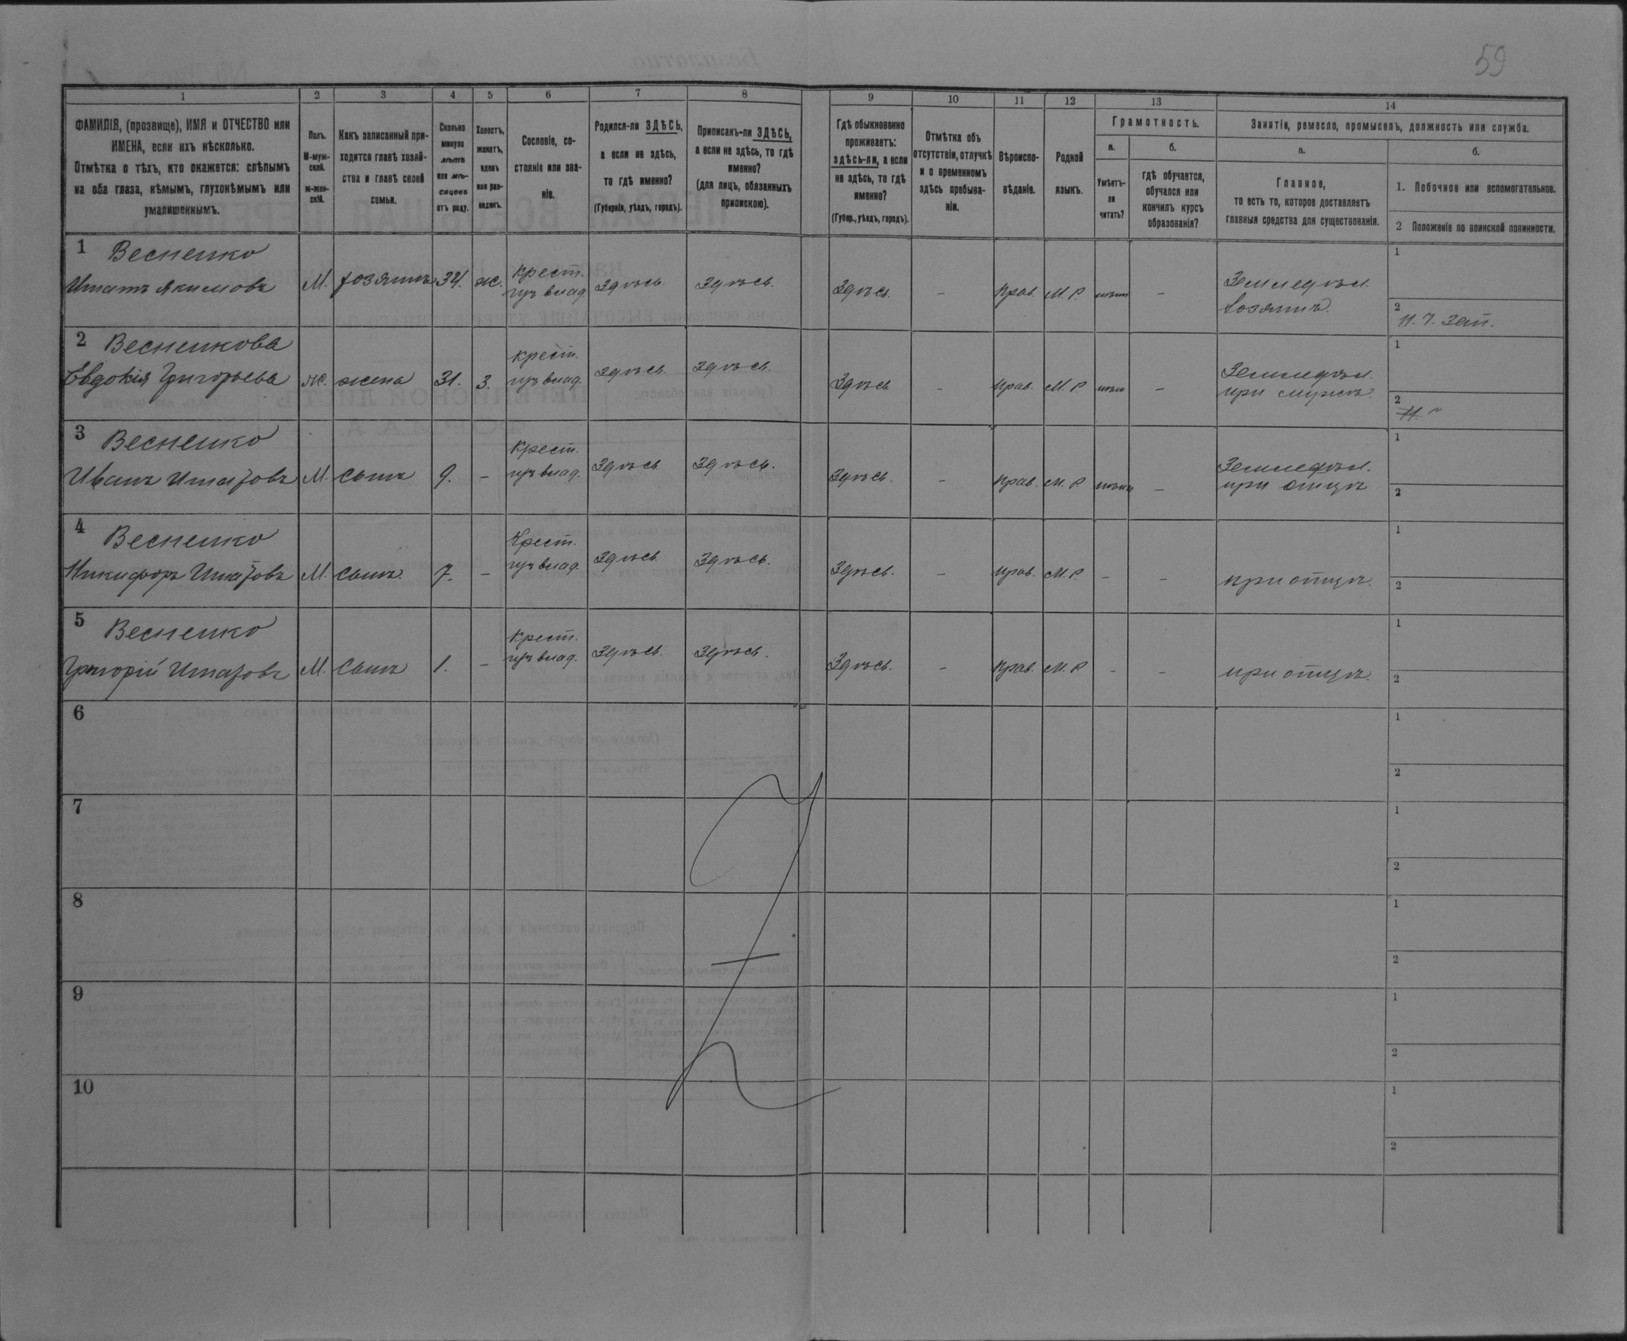 59
1 2 3 4 5 6 7 8 9 10 11 12 13 14
ФАМИЛІЯ, (прозвище), ИМЯ и ОТЧЕСТВО или
ИМЕНА, если ихъ нѣсколько.
Отмѣтка о тѣхъ, кто окажется: слѣпымъ
на оба глаза, нѣмымъ, глухонѣмымъ или
умалишеннымъ.
Полъ.
М-муж-
ской.
ж-жен-
скій.
Какъ записанный при-
ходится главѣ хозяй-
ства и главѣ своей
семьи.
Сколько
минуло
лѣтъ
или мѣ-
сяцевъ
отъ роду.
Холостъ,
женатъ,
вдовъ
или раз-
веденъ.
Сословіе, со-
стояніе или зва-
ніе.
Родился-ли ЗДѢСЬ,
а если не здѣсь,
то гдѣ именно?
(Губернія, уѣздъ, городъ).
Приписанъ-ли ЗДѢСЬ,
а если не здѣсь, то гдѣ
именно?
(для лицъ, обязанныхъ
припискою).
Гдѣ обыкновенно
проживаетъ:
здѣсь-ли, а если
не здѣсь, то гдѣ
именно?
(Губер., уѣздъ, городъ).
Отмѣтка объ
отсутствіи, отлучкѣ
и о временномъ
здѣсь пребыва-
ніи.
Вѣроиспо-
вѣданіе.
Родной
языкъ.
Грамотность.
а.
Умѣетъ-
ли
читать?
б.
гдѣ обучается,
обучался или
кончилъ курсъ
образованія?
Занятіе, ремесло, промыселъ, должность или служба.
а.
Главное,
то есть то, которое доставляетъ
главныя средства для существованія.
б.
1. Побочное или вспомогательное.
2 Положеніе по воинской повинности.
1 Весненко
Ипатъ Якимовъ М. хозяинъ 34. ж. крест. изъ влад. здѣсь здѣсь. здѣсь. - прав. М. Р - Земледѣл. хозяинъ. 1
2
2 Весненкова
Евдокія Григорьева ж. жена 31. з. крест. изъ влад. здѣсь здѣсь. здѣсь - прав. М. Р - Земледѣл. при мужѣ. 1
2
3 Весненко
Иванъ Ипатовъ М. сынъ 9. - крест. изъ влад. здѣсь здѣсь. здѣсь. - прав. М. Р - Земледѣл. при отцѣ 1
2
4 Весненко
Никифоръ Ипатовъ М. сынъ 7. - Крест. изъ влад. здѣсь здѣсь. здѣсь. - прав. М. Р - - при отцѣ. 1
2
5 Весненко
Григорій Ипатовъ М. сынъ 1. - крест. изъ влад. здѣсь здѣсь. здѣсь. - прав. М. Р - - при отцѣ. 1
2
6 1
2
7 1
2
8 1
2
9 1
2
10 1
2